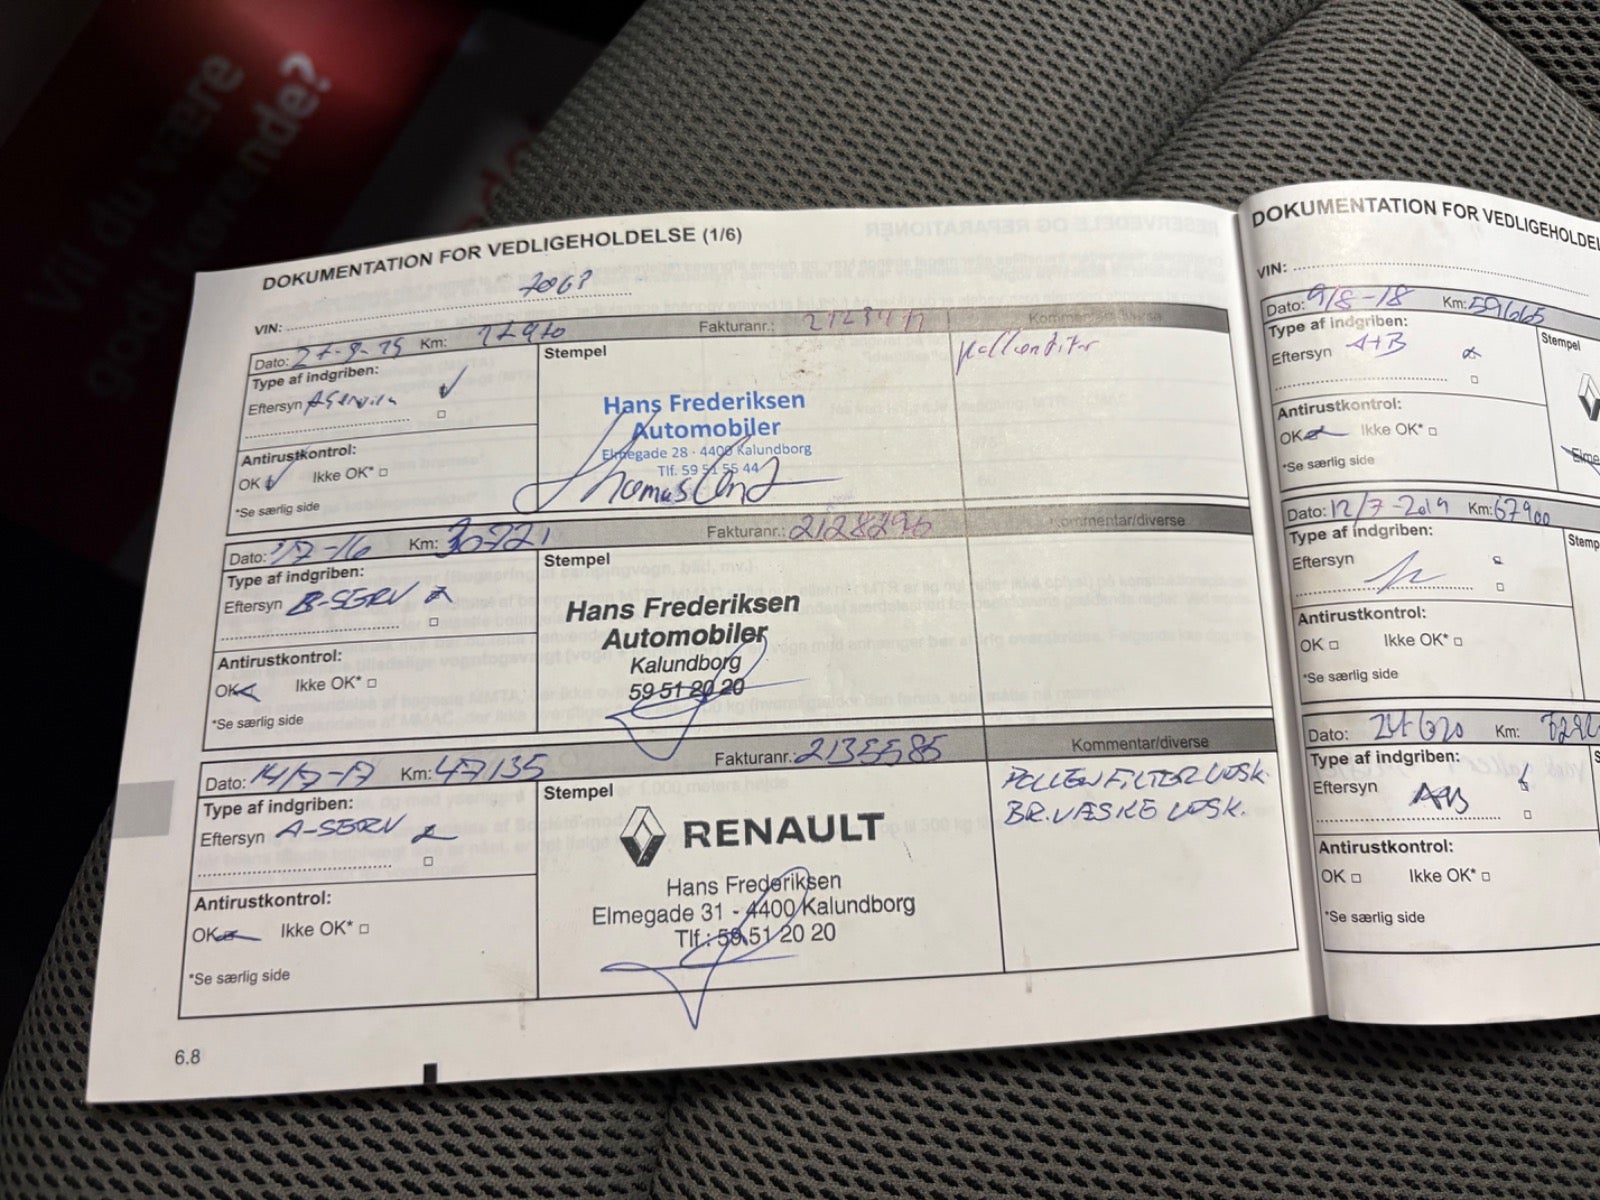 Vil du være
godt kørende?
DOKUMENTATION FOR VEDLIGEHOLDELSE (1/6)
VIN:
Dato: Km: Fakturanr.: Kommentar/diverse
Type af indgriben:
Eftersyn A Service
Stempel
Pollenfilter
Hans Frederiksen
Automobiler
Elmegade 28 - 4400 Kalundborg
Tlf. 59 51 55 44
Antirustkontrol:
OK Ikke OK*
*Se særlig side
Dato: Km: 30721 Fakturanr.: 2128296 Kommentar/diverse
Type af indgriben:
Eftersyn B-SERV
Stempel
Hans Frederiksen
Automobiler
Kalundborg
59 51 20 20
Antirustkontrol:
OK Ikke OK*
*Se særlig side
Dato: 14/7-17 Km: 47135 Fakturanr.: 2135585 Kommentar/diverse
Type af indgriben:
Eftersyn A-SERV
Stempel
RENAULT
Hans Frederiksen
Elmegade 31 - 4400 Kalundborg
Tlf.: 59 51 20 20
POLLENFILTER UDSK.
BR.VÆSKE UDSK.
Antirustkontrol:
OK Ikke OK*
*Se særlig side
6.8
DOKUMENTATION FOR VEDLIGEHOLDEL
VIN:
Dato: 9/8-18 Km: 59665
Type af indgriben:
Eftersyn A+B
Stempel
Antirustkontrol:
OK Ikke OK*
*Se særlig side
Elme
Dato: 12/7-2019 Km: 67900
Type af indgriben:
Eftersyn
Stemp
Antirustkontrol:
OK Ikke OK*
*Se særlig side
Dato: Km:
Type af indgriben:
Eftersyn
Antirustkontrol:
OK Ikke OK*
*Se særlig side